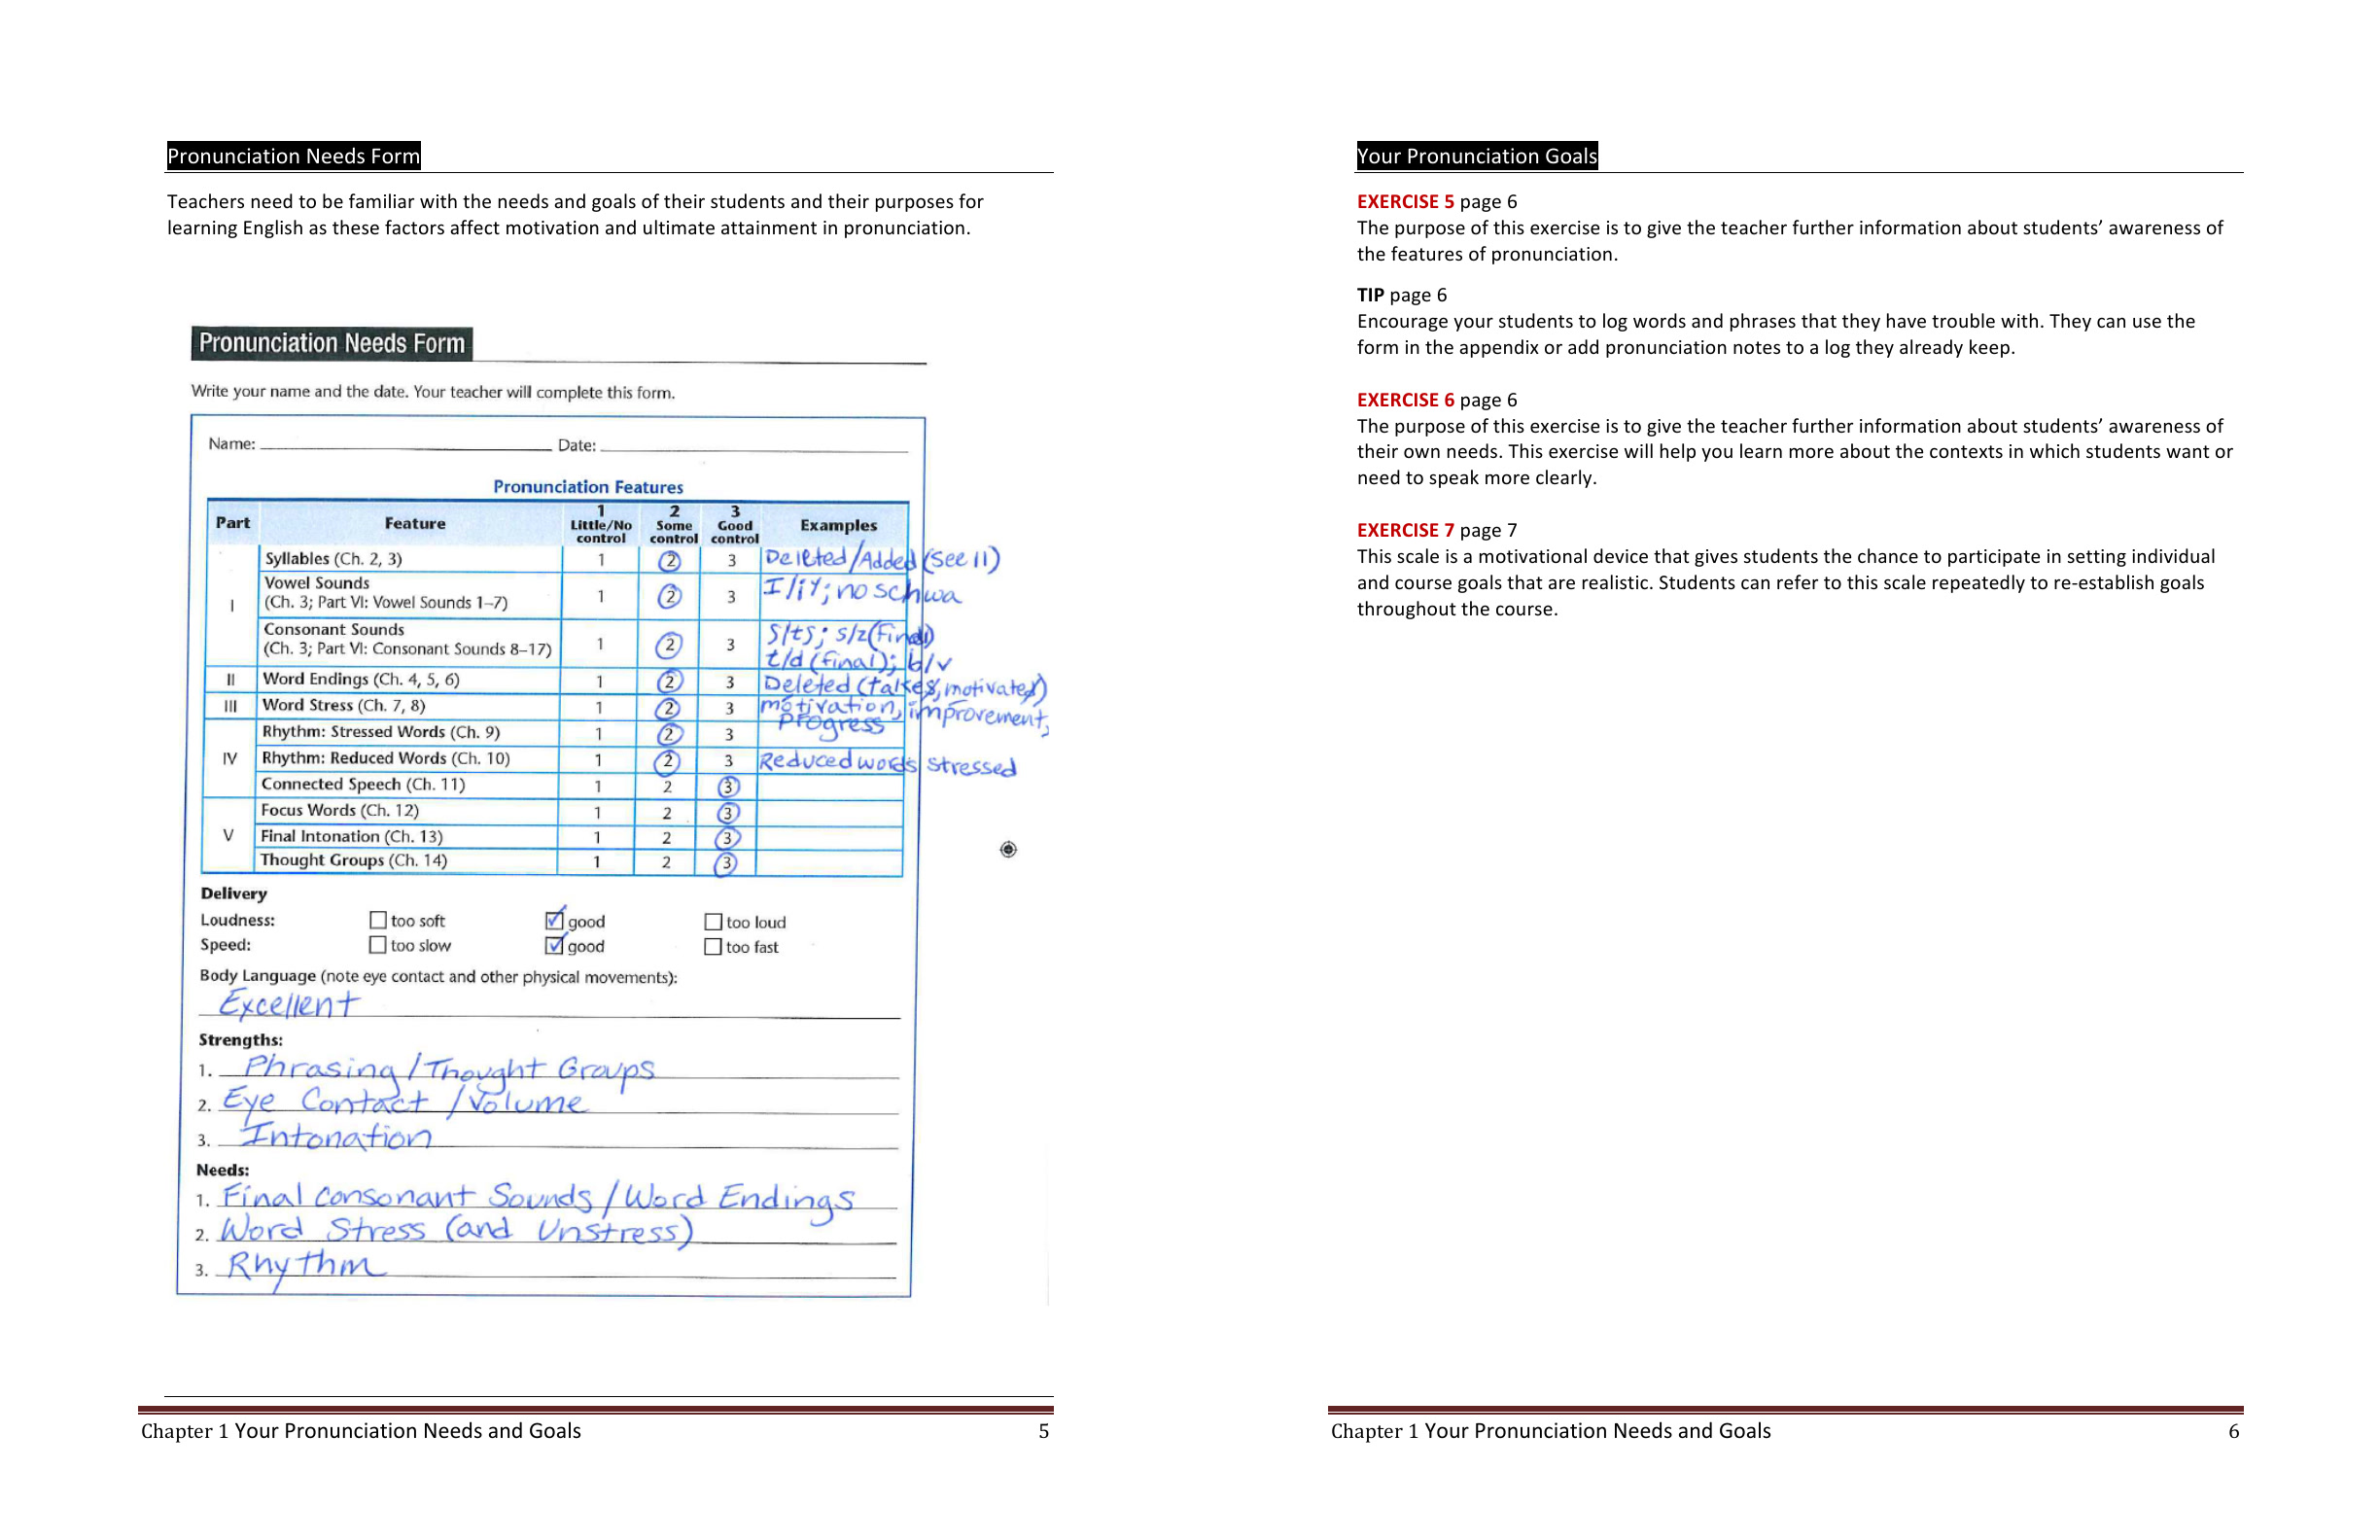 Pronunciation Needs Form
Teachers need to be familiar with the needs and goals of their students and their purposes for
learning English as these factors affect motivation and ultimate attainment in pronunciation.
Pronunciation Needs Form
Write your name and the date. Your teacher will complete this form.
Name: Date:
Pronunciation Features
Part Feature 1 Little/No control 2 Some control 3 Good control Examples
I Syllables (Ch. 2, 3) 1 2 3 Deleted/Added (see II)
Vowel Sounds
(Ch. 3; Part VI: Vowel Sounds 1–7) 1 2 3 I/iy; no schwa
Consonant Sounds 1 2 3 s/ts; s/z (final)
(Ch. 3; Part VI: Consonant Sounds 8–17) t/d (final); b/v
II Word Endings (Ch. 4, 5, 6) 1 2 3 Deleted (takes, motivated)
III Word Stress (Ch. 7, 8) 1 2 3 mótivation, ímprovement,
progress
IV Rhythm: Stressed Words (Ch. 9) 1 2 3
Rhythm: Reduced Words (Ch. 10) 1 2 3 Reduced words stressed
Connected Speech (Ch. 11) 1 2 3
V Focus Words (Ch. 12) 1 2 3
Final Intonation (Ch. 13) 1 2 3
Thought Groups (Ch. 14) 1 2 3
Delivery
Loudness: too soft good too loud
Speed: too slow good too fast
Body Language (note eye contact and other physical movements):
Excellent
Strengths:
1. Phrasing/Thought Groups
2. Eye Contact/Volume
3. Intonation
Needs:
1. Final Consonant Sounds/Word Endings
2. Word Stress (and Unstress)
3. Rhythm
Chapter 1 Your Pronunciation Needs and Goals 5
Your Pronunciation Goals
EXERCISE 5 page 6
The purpose of this exercise is to give the teacher further information about students’ awareness of
the features of pronunciation.
TIP page 6
Encourage your students to log words and phrases that they have trouble with. They can use the
form in the appendix or add pronunciation notes to a log they already keep.
EXERCISE 6 page 6
The purpose of this exercise is to give the teacher further information about students’ awareness of
their own needs. This exercise will help you learn more about the contexts in which students want or
need to speak more clearly.
EXERCISE 7 page 7
This scale is a motivational device that gives students the chance to participate in setting individual
and course goals that are realistic. Students can refer to this scale repeatedly to re-establish goals
throughout the course.
Chapter 1 Your Pronunciation Needs and Goals 6